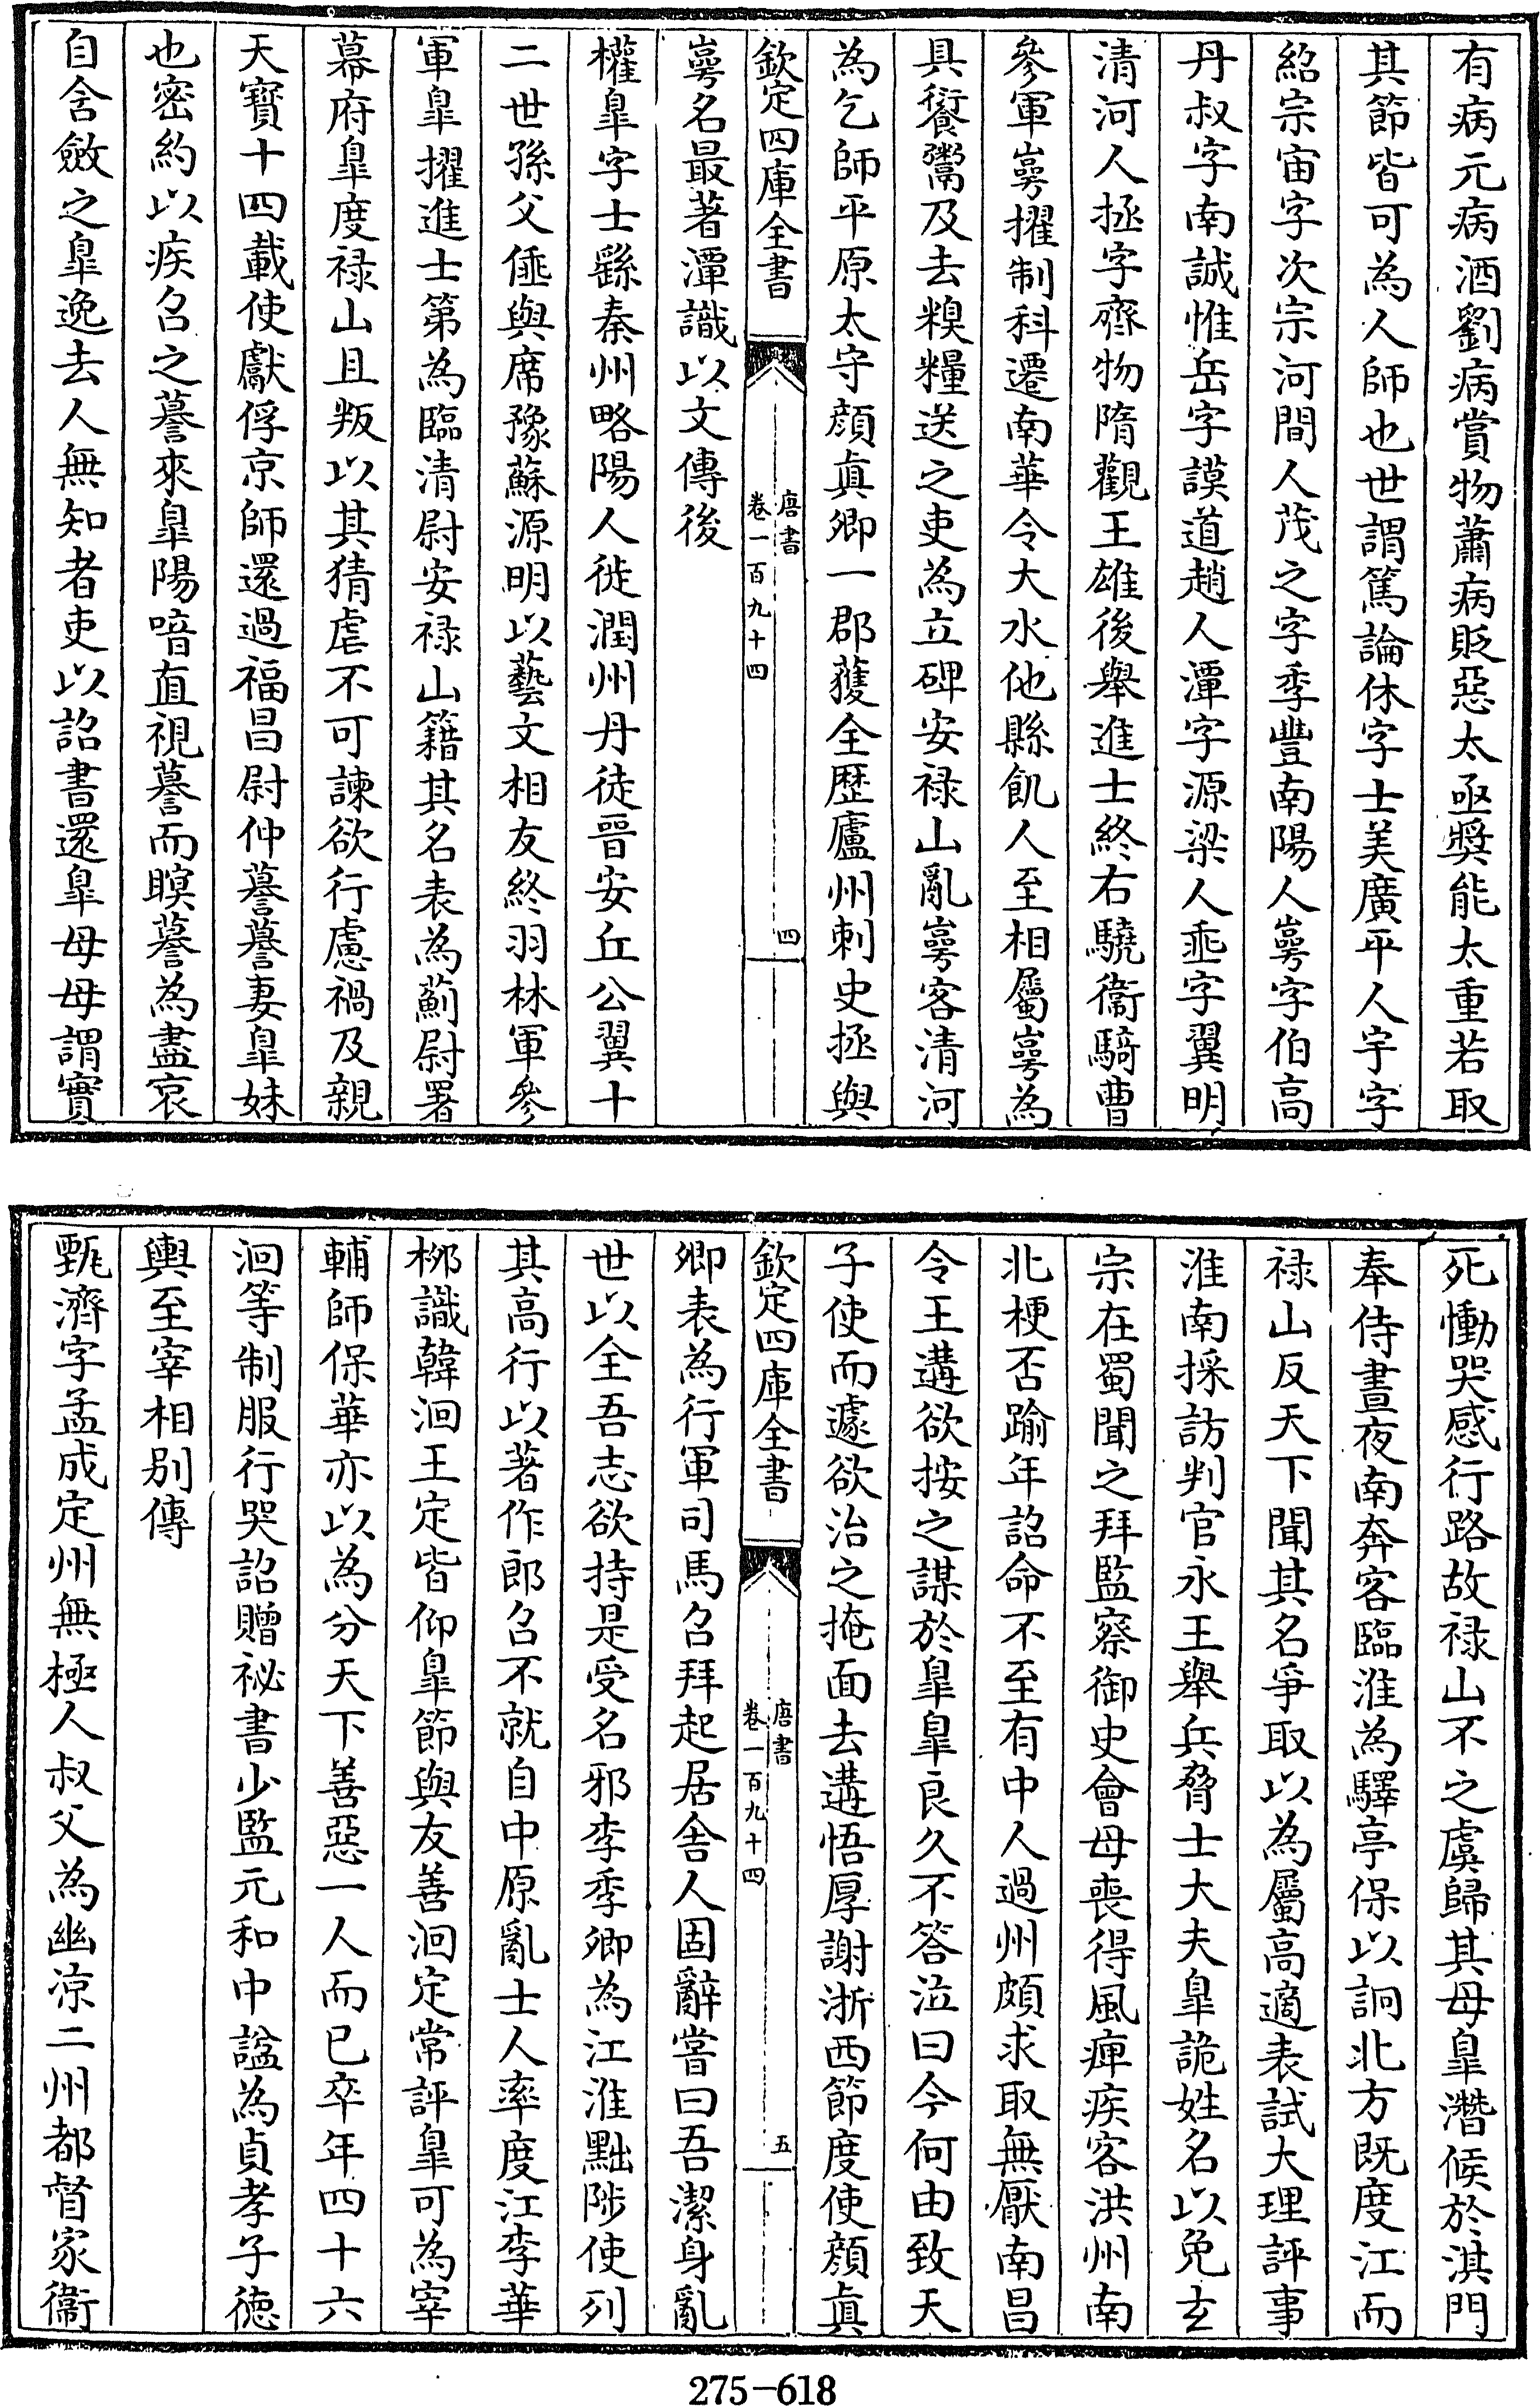 有病元病酒劉病賞物蕭病貶惡太亟奬能太重若取
其節皆可為人師也世謂篤論休字士美廣平人宇字
紹宗宙字次宗河間人茂之字季豐南陽人㟧字伯高
丹叔字南誠惟岳字謨道趙人潭字源梁人垂字翼明
清河人拯字齊物隋觀王雄後舉進士終右驍衞騎曹
參軍㟧擢制科遷南華令大水他縣飢人至相屬㟧為
具餐鬻及去糗糧送之吏為立碑安禄山亂㟧客清河
為乞師平原太守顔真卿一郡獲全歴廬州刺史拯與
欽定四庫全書
唐書
卷一百九十四
四
㟧名最著潭識以文傳後
權臯字士繇秦州略陽人徙潤州丹徒晉安丘公翼十
二世孫父倕與席豫蘇源明以藝文相友終羽林軍參
軍臯擢進士第為臨清尉安禄山籍其名表為薊尉署
幕府臯度禄山且叛以其猜虐不可諫欲行慮禍及親
天寳十四載使獻俘京師還過福昌尉仲謩謩妻臯妹
也密約以疾召之謩來臯陽喑直視謩而瞑謩為盡哀
自含斂之臯逸去人無知者吏以詔書還臯母母謂實
死慟哭感行路故禄山不之虞歸其母臯潛候於淇門
奉侍晝夜南奔客臨淮為驛亭保以詗北方既度江而
禄山反天下聞其名爭取以為屬高適表試大理評事
淮南採訪判官永王舉兵脅士大夫臯詭姓名以免玄
宗在蜀聞之拜監察御史會母喪得風痺疾客洪州南
北梗否踰年詔命不至有中人過州頗求取無厭南昌
令王遘欲按之謀於臯臯良久不答泣曰今何由致天
子使而遽欲治之掩面去遘悟厚謝浙西節度使顔真
欽定四庫全書
唐書
卷一百九十四
五
卿表為行軍司馬召拜起居舍人固辭嘗曰吾潔身亂
世以全吾志欲持是受名邪李季卿為江淮黜陟使列
其高行以著作郎召不就自中原亂士人率度江李華
柳識韓洄王定皆仰臯節與友善洄定常評臯可為宰
輔師保華亦以為分天下善惡一人而已卒年四十六
洄等制服行哭詔贈祕書少監元和中諡為貞孝子徳
輿至宰相别傳
甄濟字孟成定州無極人叔父為幽凉二州都督家衞
275-618